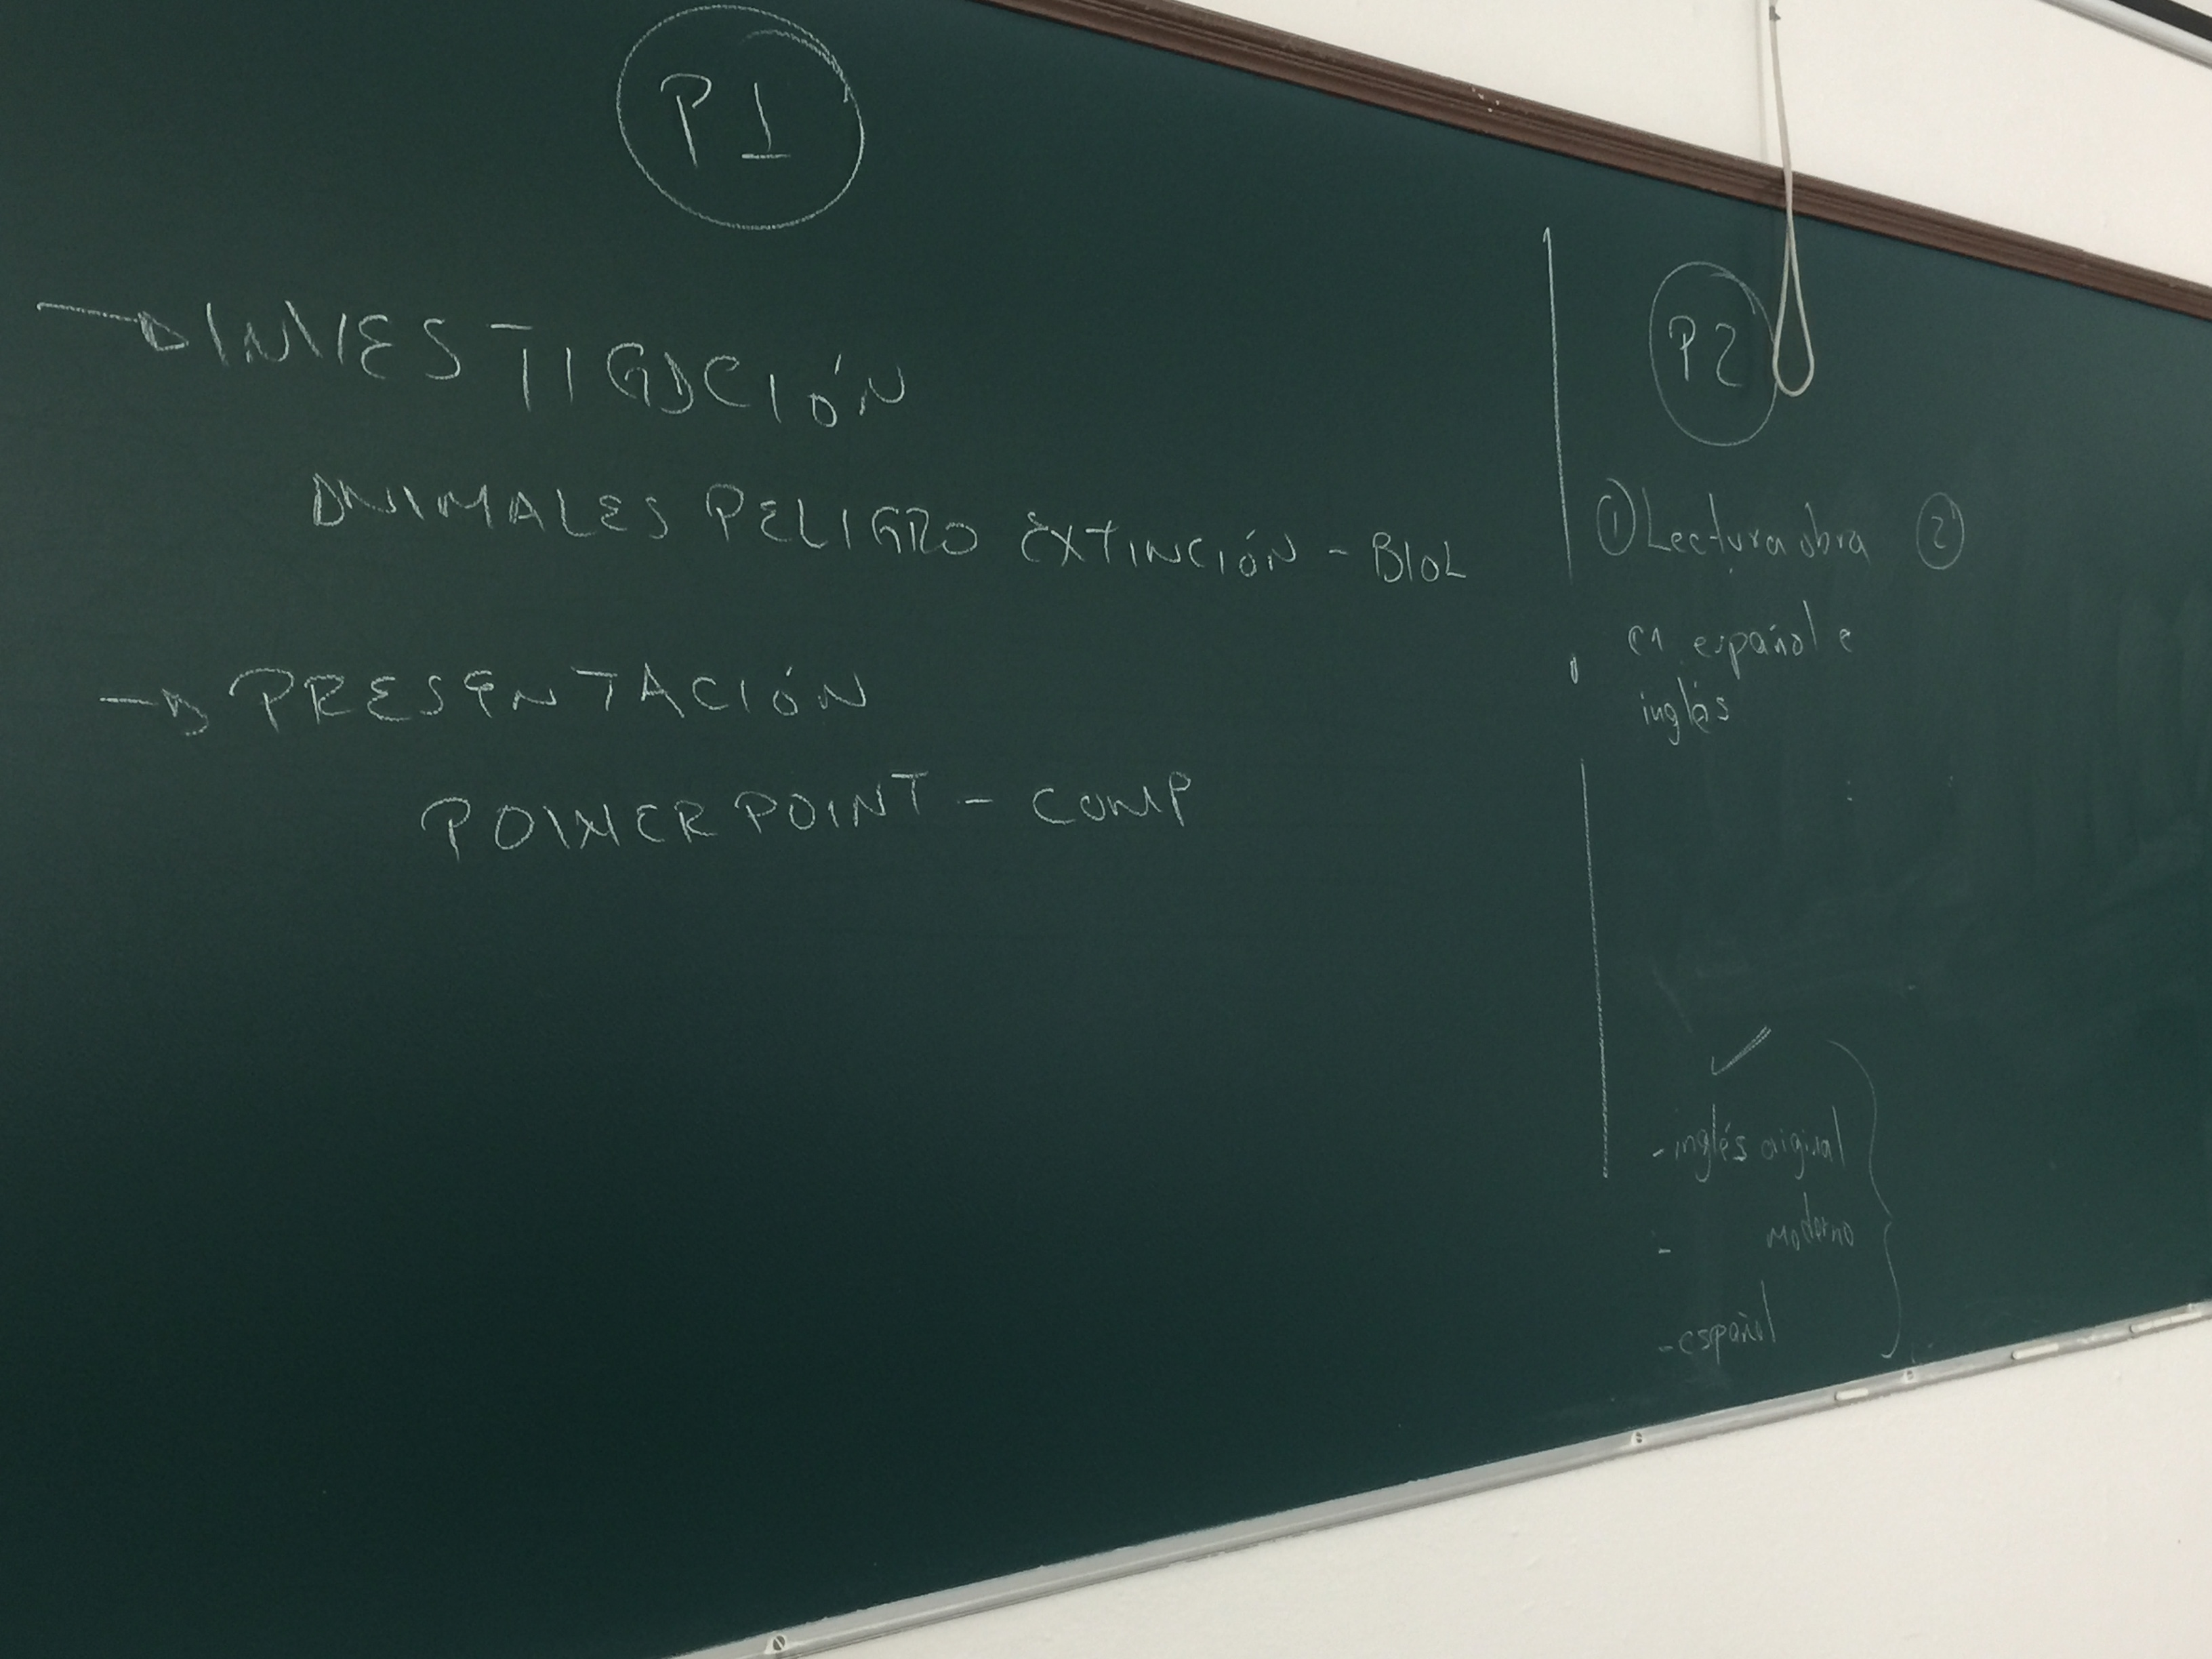 P1
→ INVESTIGACIÓN
ANIMALES PELIGRO EXTINCIÓN - BIOL
→ PRESENTACIÓN
POWER POINT - COMP
P2
① Lectura obra ②
en español e
inglés
✓
- inglés original
- moderno
- español